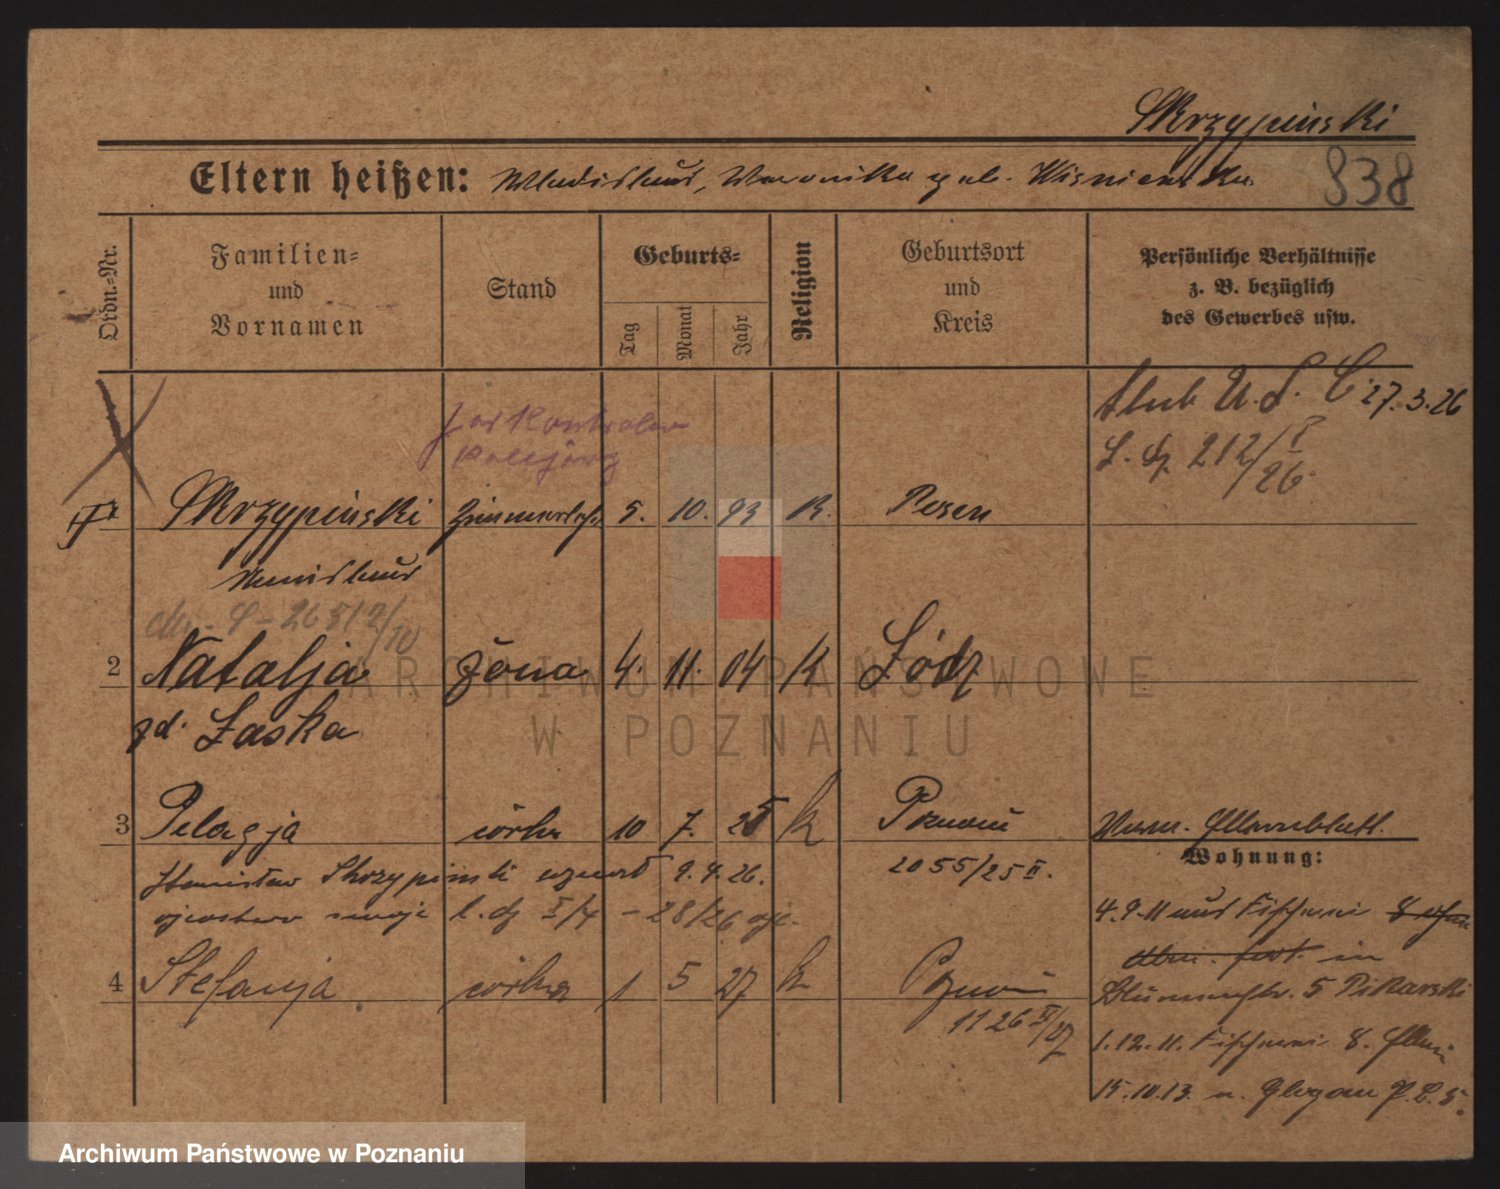 Skrzypinski
838
Eltern heißen: Wladislaus, Weronika geb. Wisniewska
Ordn.-Nr.
Familien-
und
Vornamen
Stand
Geburts-
Tag
Monat
Jahr
Religion
Geburtsort
und
Kreis
Persönliche Verhältnisse
z. B. bezüglich
des Gewerbes usw.
ślub U. S. C. 27.3.26
L. dz. 212/I
26
1 Skrzypinski 5. 10. 93 K. Posen
Stanislaus
2 Natalja żona 4. 11. 04 K Łódź
zd. Łaska
ARCHIWUM PAŃSTWOWE
W POZNANIU
3 Pelagja córka 10 7. 25 k Poznań
Wohnung:
Stanisław Skrzypinski uznał 9.4.26. 2055/25 II.
ojcostwo swoje l. dz I/4 - 28/26
4.9.11 aus Fischerei 8
in
4 Stefanja córka 1 5 27 k Poznań
1126 II/27
5 Pikarski
1.12.11. Fischerei 8.
15.10.13. n. Glogau
Archiwum Państwowe w Poznaniu